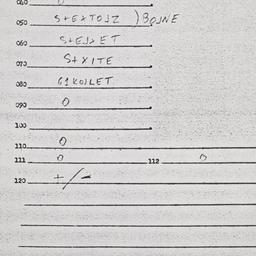 040
050 S+EXTOJZ )BOJNE
060 S+EJXET
070 S+XITE
080 G1KOJLET
090 O
100
110 O
111 O 112 O
120 +/-